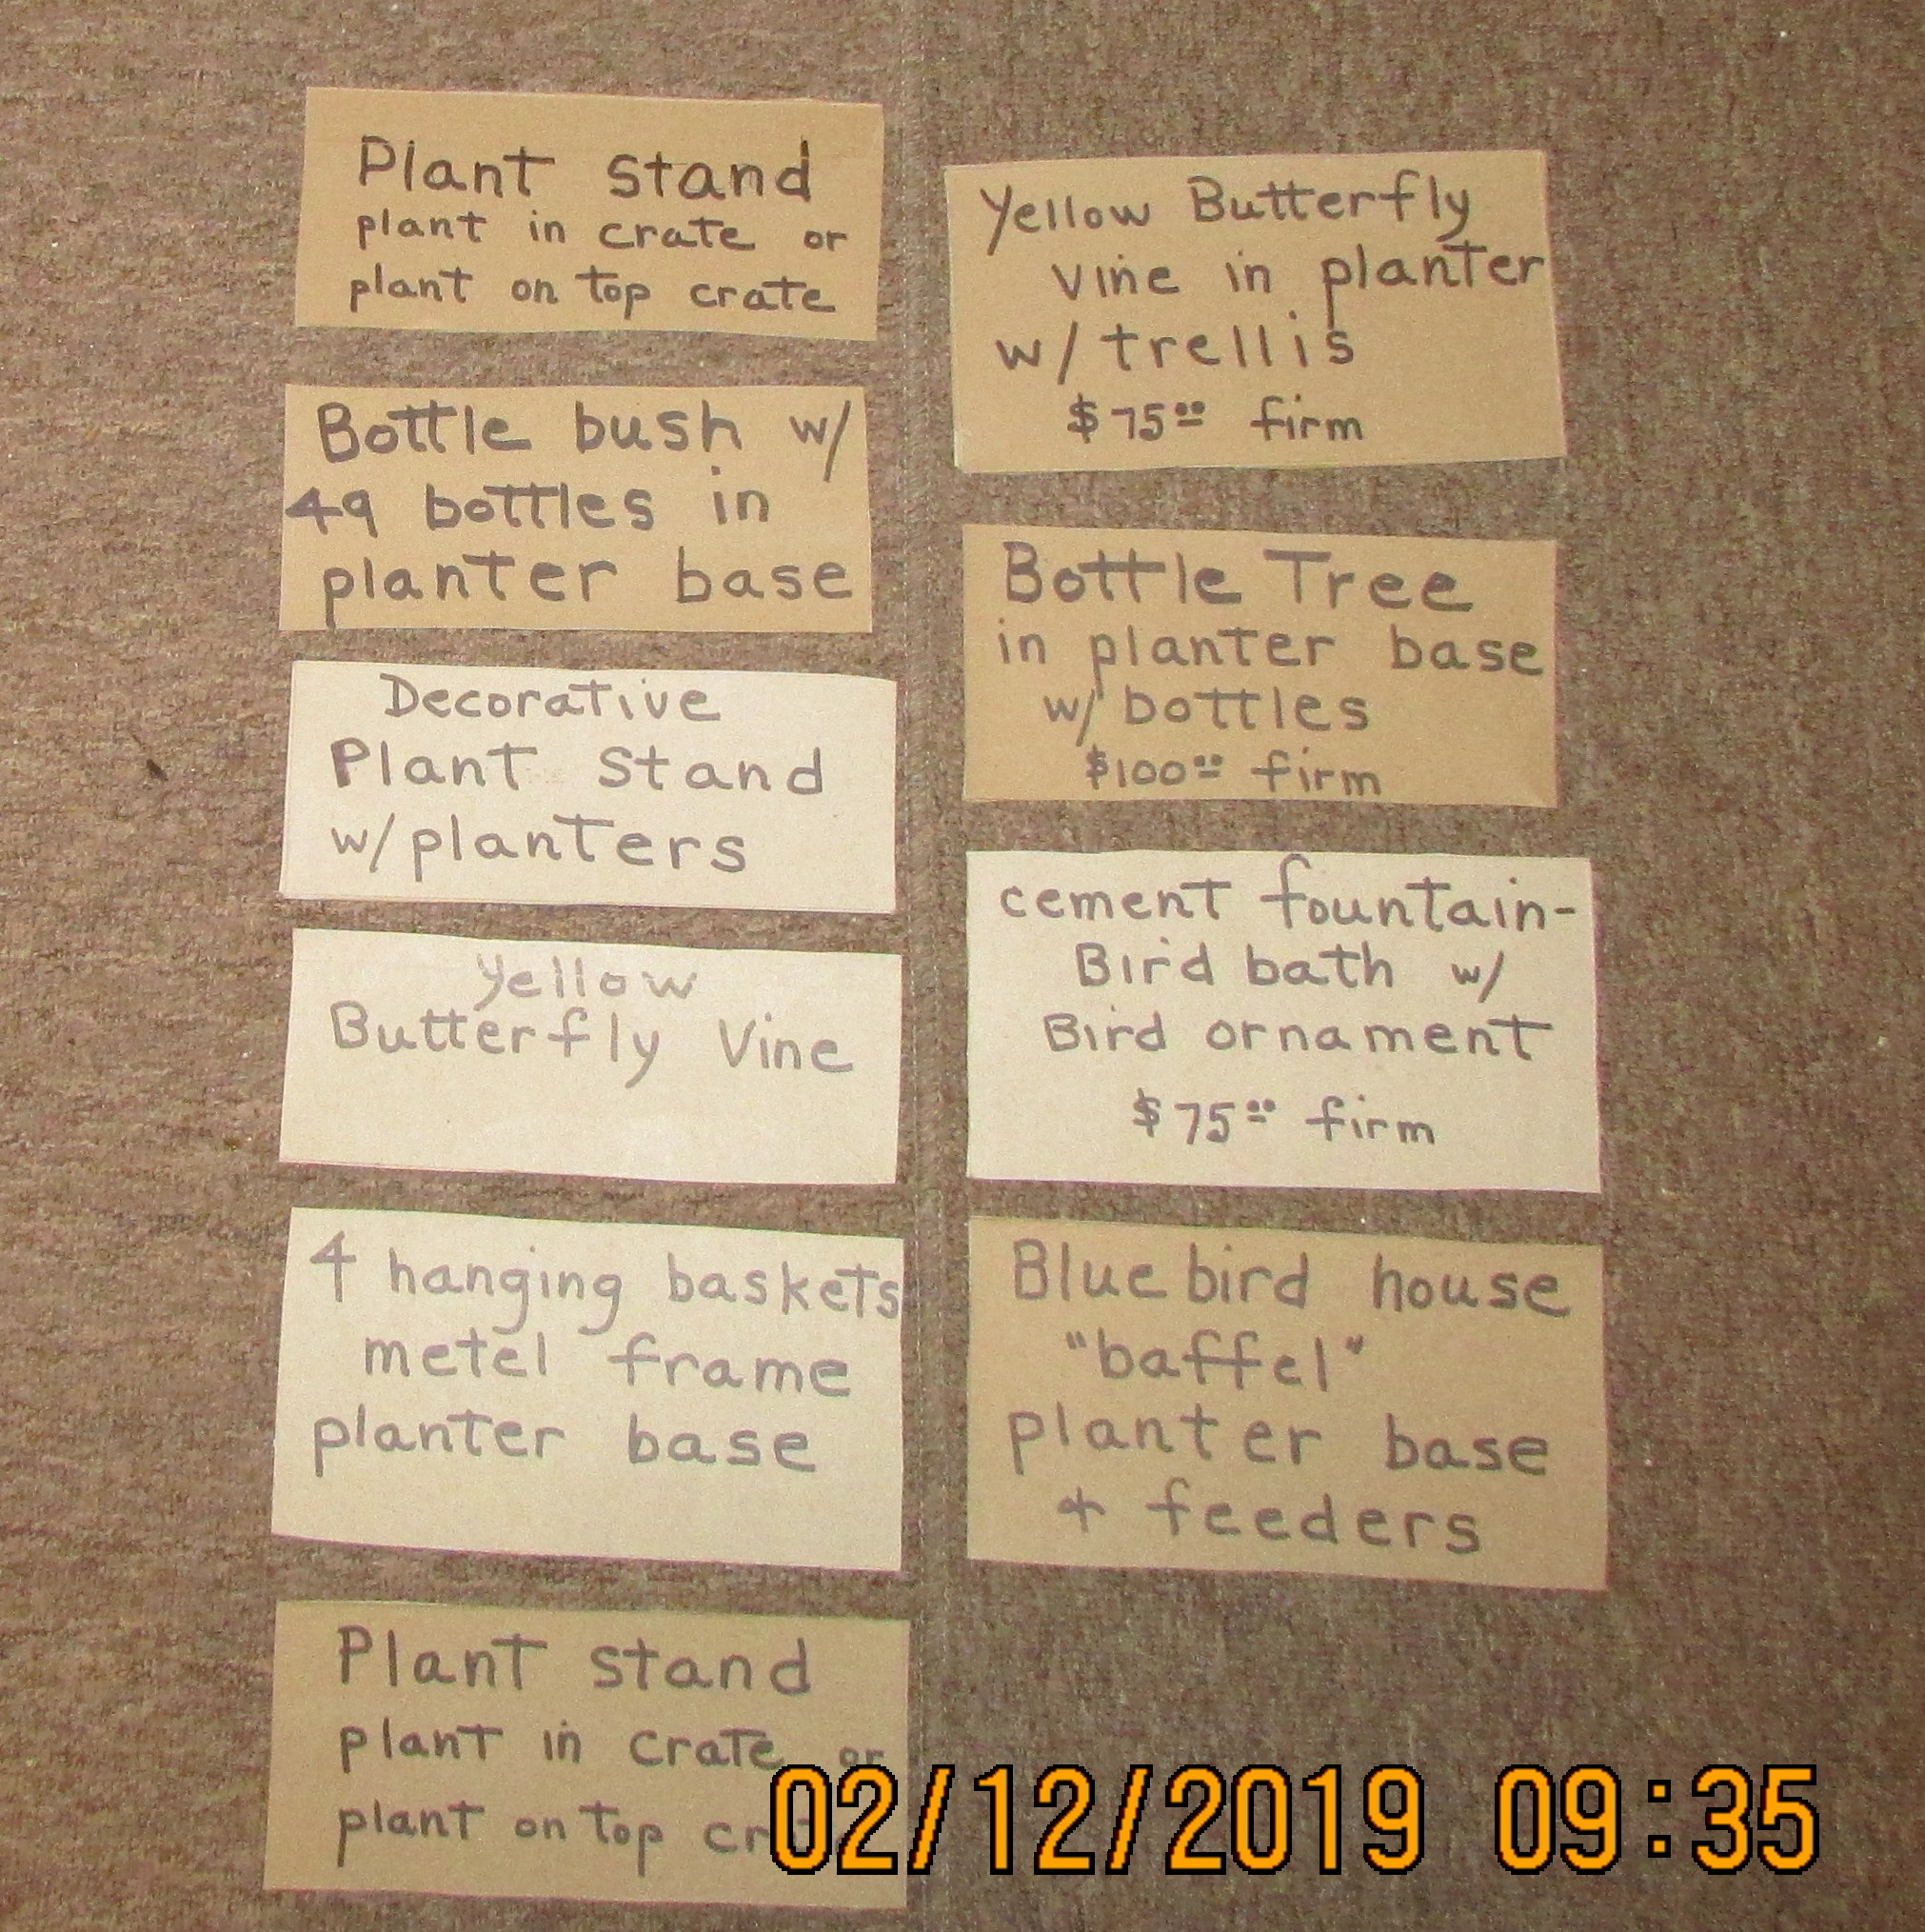 Plant stand
plant in crate or
plant on top crate
Bottle bush w/
49 bottles in
planter base
Decorative
Plant Stand
w/planters
Yellow
Butterfly Vine
4 hanging baskets
metel frame
planter base
Plant stand
plant in crate or
plant on top
Yellow Butterfly
vine in planter
w/ trellis
$75.00 firm
Bottle Tree
in planter base
w/ bottles
$100.00 firm
cement fountain-
Bird bath w/
Bird ornament
$75.00 firm
Blue bird house
"baffel"
planter base
+ feeders
02/12/2019 09:35